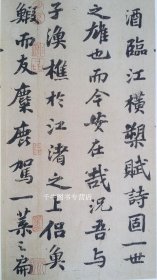 酒臨江橫槊賦詩固一世
之雄也而今安在哉況吾與
子漁樵於江渚之上侶魚
鰕而友麋鹿駕一葉之扁